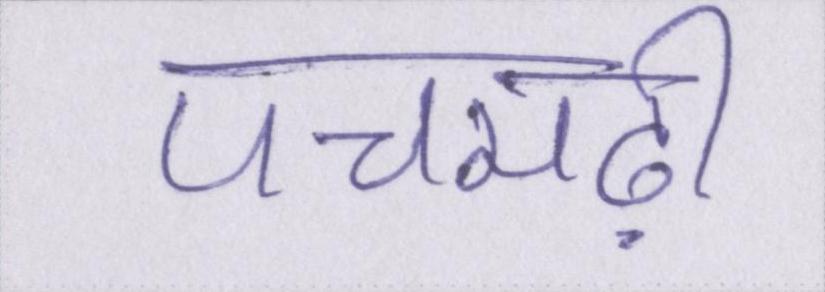 पचमढ़ी